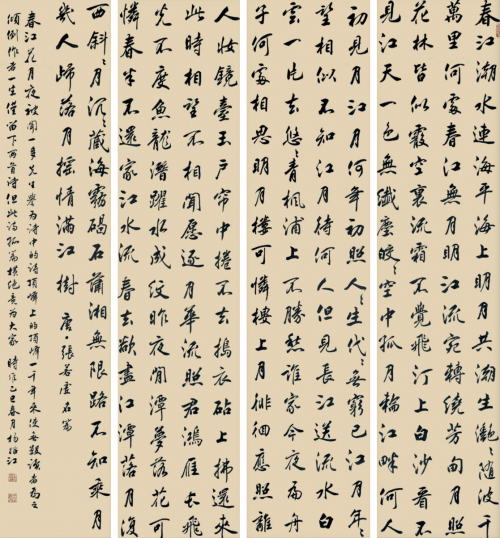 春江潮水連海平海上明月共潮生灩〻随波千
萬里何處春江無月明江流宛轉繞芳甸月照
花林皆似霰空裏流霜不覺飛汀上白沙看不
見江天一色無纖塵皎〻空中孤月輪江畔何人
初見月江月何年初照人人生代〻無窮已江月年〻
望相似不知江月待何人但見長江送流水白
雲一片去悠〻青楓浦上不勝愁誰家今夜扁舟
子何處相思明月樓可憐樓上月徘徊應照離
人妝鏡臺玉戶帘中捲不去搗衣砧上拂還來
此時相望不相聞願逐月華流照君鴻雁長飛
光不度魚龍潛躍水成紋昨夜閒潭夢落花可
憐春半不還家江水流春去欲盡江潭落月復
西斜斜月沉〻藏海霧碣石瀟湘無限路不知乘月
幾人歸落月搖情滿江樹 唐·張若虛名篇
春江花月夜被聞一多先生譽为詩中的詩頂峰上的頂峰一千年來使無數讀者為之
傾倒作者一生僅留下两首詩但此詩孤篇橫绝竟为大家 時在乙巳春月楊江